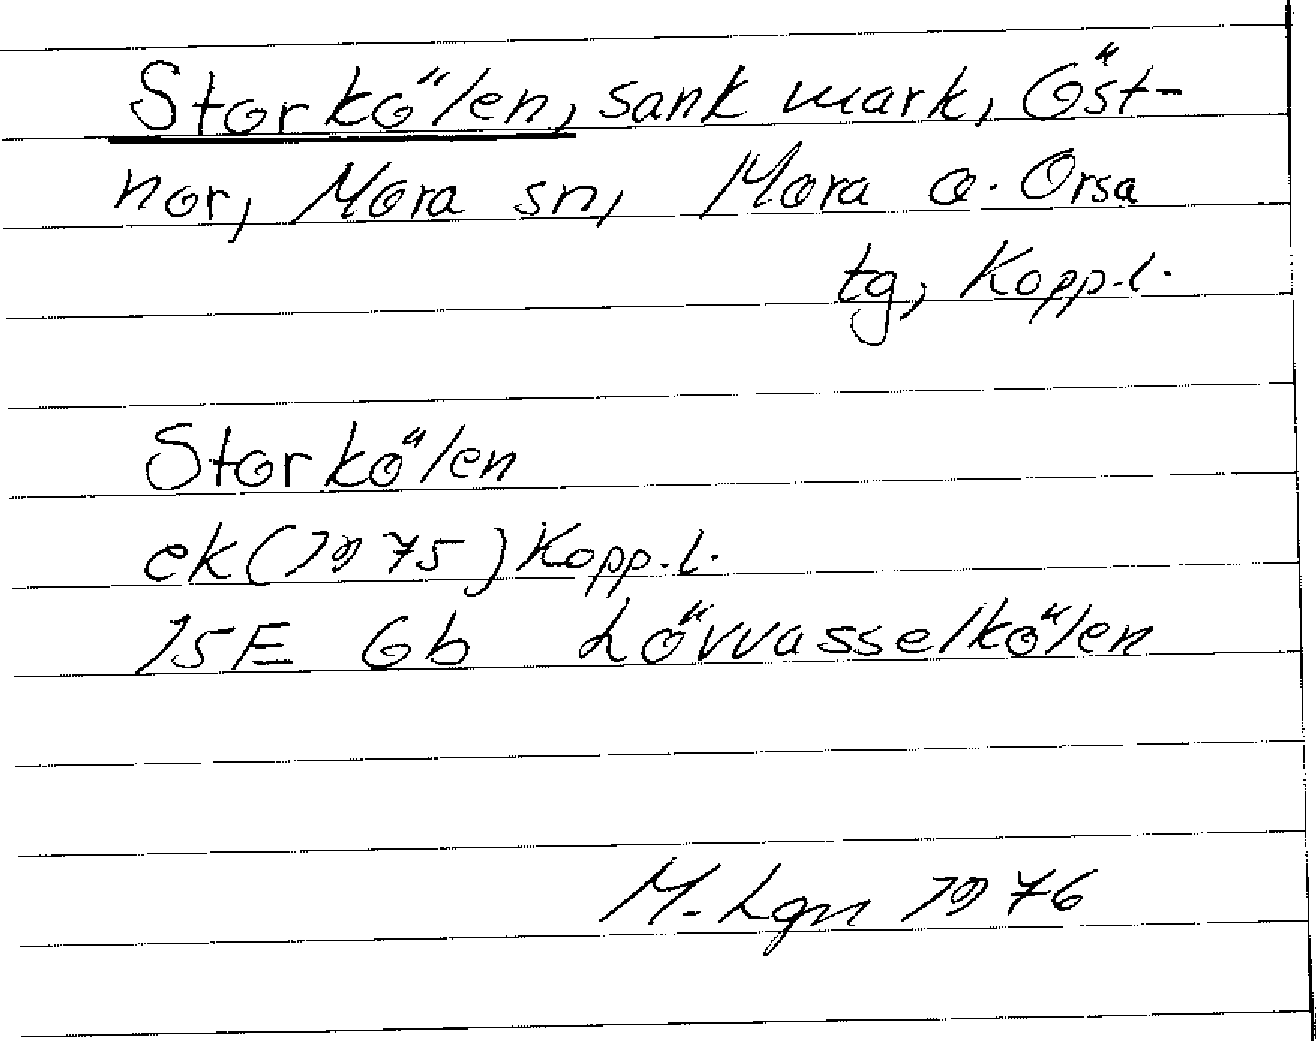 Storkölen, sank mark, Öst-
nor, Mora sn, Mora o. Orsa
tg, Kopp.l.
Storkölen
ek (1975) Kopp.l.
15E 6b Lövvasselkölen
M. Lgn 1976